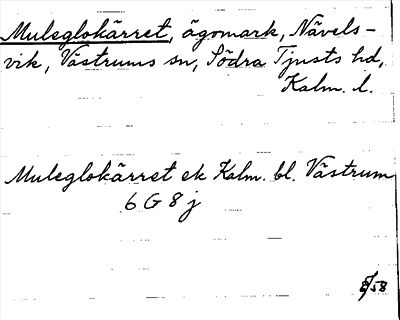 Muleglokärret, ägomark, Nävels-
vik, Västrums sn, Södra Tjusts hd,
Kalm. l.
Muleglokärret ek Kalm. bl. Västrum
6 G 8 j
8/58